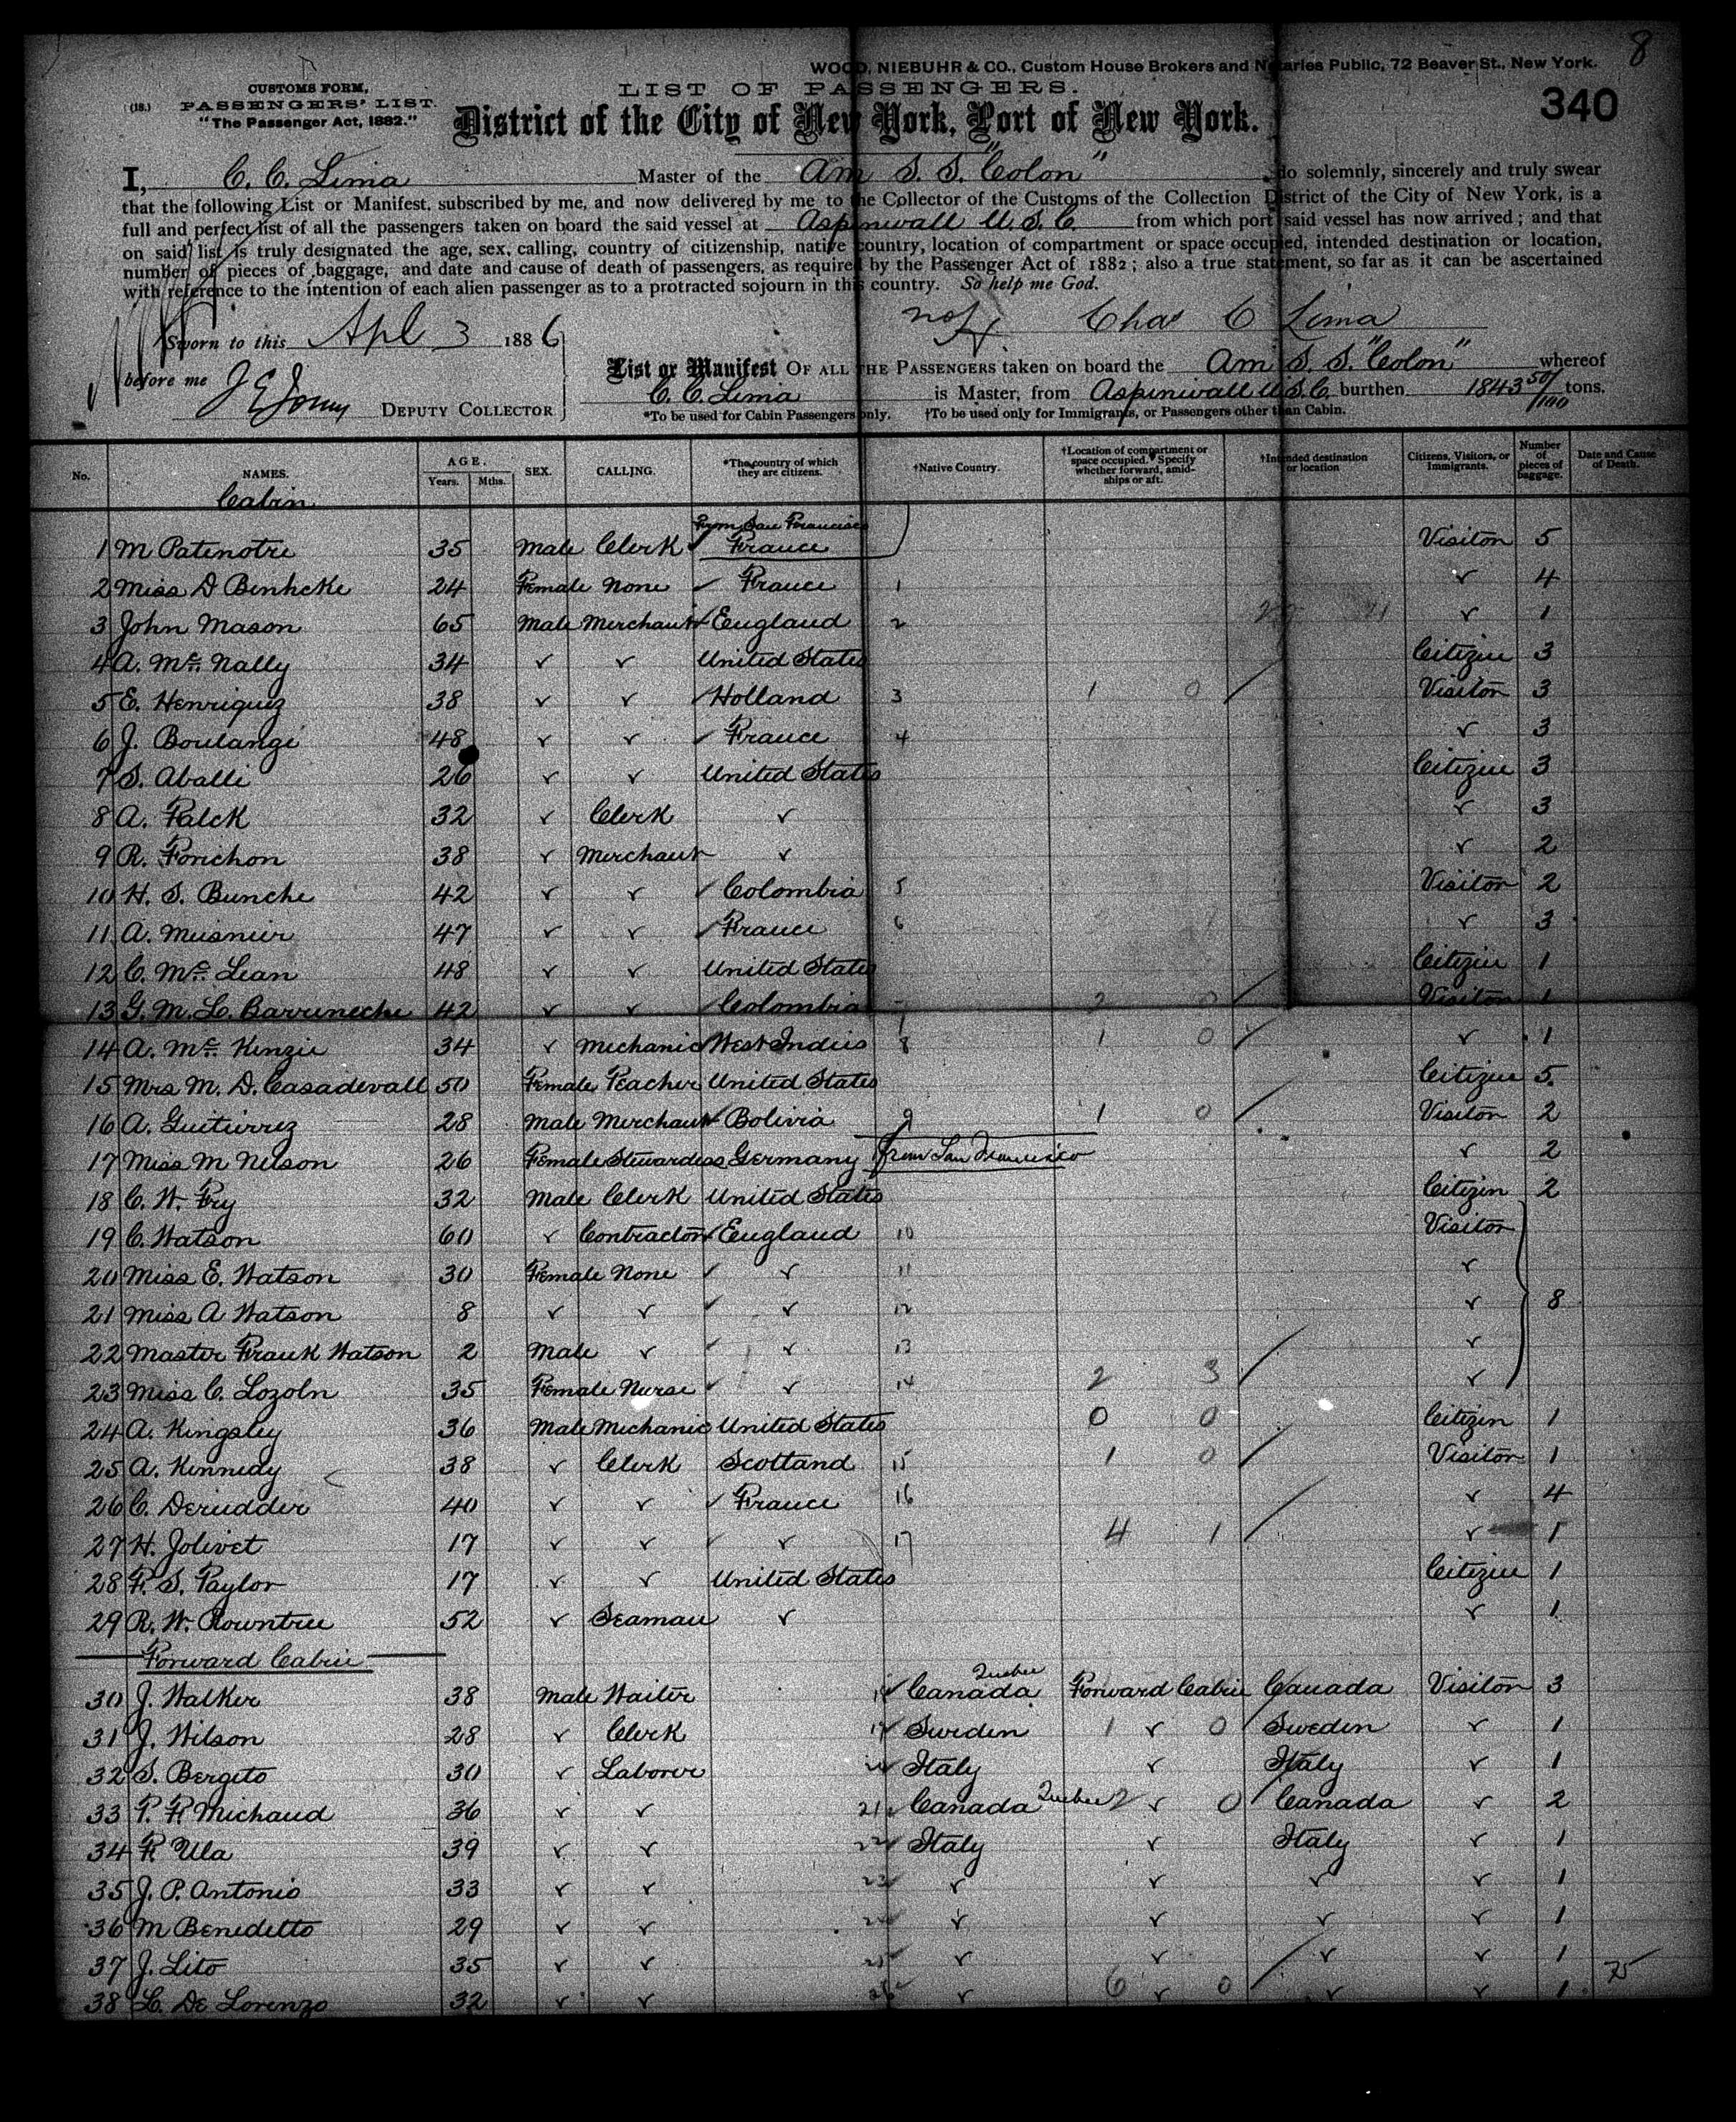 8
WOOD, NIEBUHR & CO., Custom House Brokers and Notaries Public, 72 Beaver St., New York.
(18.)
CUSTOMS FORM,
PASSENGERS' LIST.
"The Passenger Act, 1882."
LIST OF PASSENGERS.
District of the City of New York, Port of New York.
340
I, C. C. Lima Master of the Am S. S. "Colon" do solemnly, sincerely and truly swear
that the following List or Manifest, subscribed by me, and now delivered by me to the Collector of the Customs of the Collection District of the City of New York, is a
full and perfect list of all the passengers taken on board the said vessel at Aspinwall U.S.C. from which port said vessel has now arrived; and that
on said list is truly designated the age, sex, calling, country of citizenship, native country, location of compartment or space occupied, intended destination or location,
number of pieces of baggage, and date and cause of death of passengers, as required by the Passenger Act of 1882; also a true statement, so far as it can be ascertained
with reference to the intention of each alien passenger as to a protracted sojourn in this country. So help me God.
Chas C Lima
Sworn to this Apl 3 1886
before me
DEPUTY COLLECTOR
List or Manifest OF ALL THE PASSENGERS taken on board the Am S. S. "Colon" whereof
C. C. Lima is Master, from Aspinwall U.S.C. burthen 1843 50/100 tons.
*To be used for Cabin Passengers only. †To be used only for Immigrants, or Passengers other than Cabin.
No. NAMES. AGE. Years. Mths. SEX. CALLING. *The country of which they are citizens. †Native Country. †Location of compartment or space occupied. Specify whether forward, amidships or aft. †Intended destination or location Citizens, Visitors, or Immigrants. Number of pieces of baggage. Date and Cause of Death.
Cabin
From San Francisco
1 M Patenotre 35 Male Clerk ✓ France Visitor 5
2 Miss D Benhcke 24 Female None ✓ France 1 ✓ 4
3 John Mason 65 Male Merchant ✓ England 2 ✓ 1
4 A. McNally 34 ✓ ✓ United States Citizen 3
5 E. Henriquez 38 ✓ ✓ ✓ Holland 3 1 0 Visitor 3
6 J. Boulange 48 ✓ ✓ ✓ France 4 ✓ 3
7 S. Aballi 26 ✓ ✓ United States Citizen 3
8 A. Falck 32 ✓ Clerk ✓ ✓ 3
9 R. Forichon 38 ✓ Merchant ✓ ✓ 2
10 H. S. Bunche 42 ✓ ✓ ✓ Colombia 5 Visitor 2
11 A. Musnier 47 ✓ ✓ ✓ France 6 ✓ 3
12 C. McLean 48 ✓ ✓ United States Citizen 1
13 G. M. L. Barruneche 42 ✓ ✓ ✓ Colombia 7 2 0 Visitor 1
14 A. McKenzie 34 ✓ Mechanic ✓ West Indies 8 1 0 ✓ 1
15 Mrs M. D. Casadevall 50 Female Teacher United States Citizen 5
16 A. Gutierrez 28 Male Merchant ✓ Bolivia 9 1 0 Visitor 2
17 Miss M Nelson 26 Female Stewardess Germany From San Francisco ✓ 2
18 C. W. Fry 32 Male Clerk United States Citizen 2
19 C. Watson 60 ✓ Contractor ✓ England 10 Visitor
20 Miss E. Watson 30 Female None ✓ ✓ 11 ✓
21 Miss A Watson 8 ✓ ✓ ✓ ✓ 12 ✓ 8
22 Master Frank Watson 2 Male ✓ ✓ ✓ 13 ✓
23 Miss C. Lozoln 35 Female Nurse ✓ ✓ 14 2 3 ✓
24 A. Kingsley 36 Male Mechanic United States 0 0 Citizen 1
25 A. Kennedy 38 ✓ Clerk Scotland 15 1 0 Visitor 1
26 C. Derudder 40 ✓ ✓ ✓ France 16 ✓ 4
27 H. Jolivet 17 ✓ ✓ ✓ ✓ 17 4 1 ✓ 1
28 F. S. Taylor 17 ✓ ✓ United States Citizen 1
29 R. W. Rowntree 52 ✓ Seaman ✓ ✓ 1
Forward Cabin
30 J. Walker 38 Male Waiter 18 ✓ Canada Quebec Forward Cabin Canada Visitor 3
31 J. Wilson 28 ✓ Clerk 19 ✓ Sweden 1 ✓ 0 Sweden ✓ 1
32 S. Bergito 30 ✓ Laborer ✓ Italy ✓ Italy ✓ 1
33 P. F. Michaud 36 ✓ ✓ 21 ✓ Canada Quebec 2 ✓ 0 Canada ✓ 2
34 F. Ula 39 ✓ ✓ 22 ✓ Italy ✓ Italy ✓ 1
35 J. P. Antonio 33 ✓ ✓ 23 ✓ ✓ ✓ ✓ ✓ 1
36 M Benedetto 29 ✓ ✓ 24 ✓ ✓ ✓ ✓ ✓ 1
37 J. Lito 35 ✓ ✓ 25 ✓ ✓ ✓ ✓ ✓ 1
38 L. De Lorenzo 32 ✓ ✓ 26 ✓ ✓ 6 ✓ 0 ✓ ✓ 1